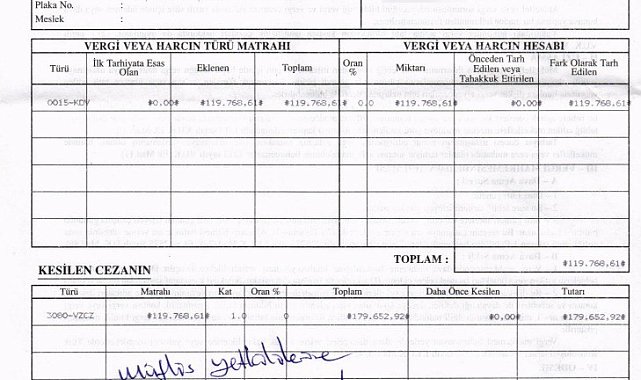 Plaka No. :
Meslek :
VERGİ VEYA HARCIN TÜRÜ MATRAHI VERGİ VEYA HARCIN HESABI
Türü İlk Tarhiyata Esas Olan Eklenen Toplam Oran % Miktarı Önceden Tarh Edilen veya Tahakkuk Ettirilen Fark Olarak Tarh Edilen
0015-KDV *0.00* *119.768,61* *119.768,61* 0.0 *119.768,61* *0.00* *119.768,61*
TOPLAM : *119.768,61*
KESİLEN CEZANIN
Türü Matrahı Kat Oran % Toplam Daha Önce Kesilen Tutarı
3080-VZCZ *119.768,61* 1.0 0 *179.652,92* *0,00* *179.652,92*